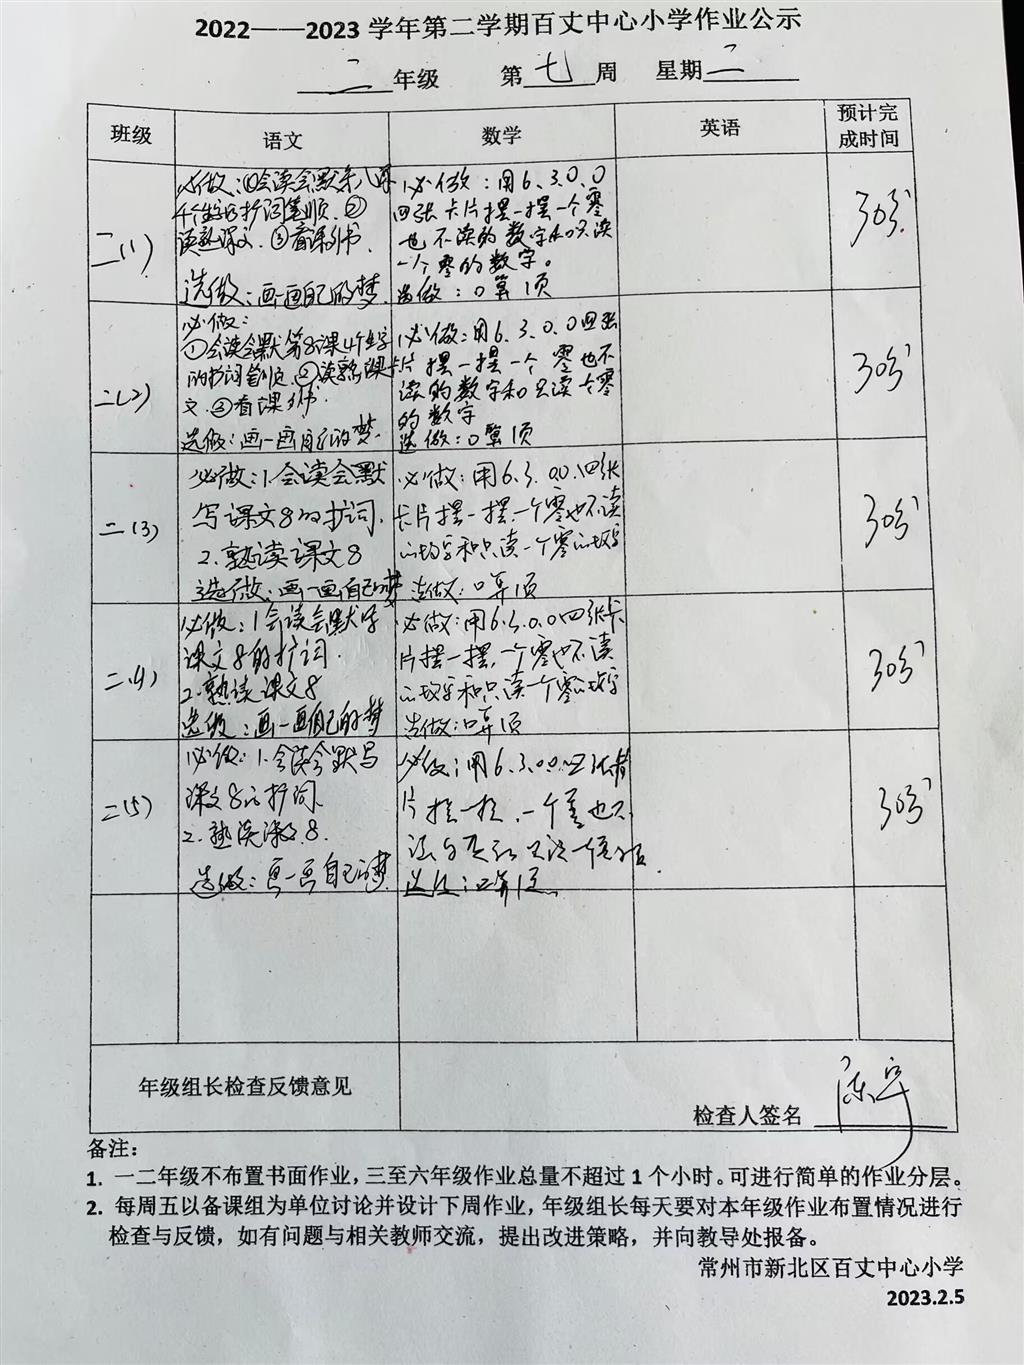 2022——2023学年第二学期百丈中心小学作业公示
二年级 第七周 星期二
班级 语文 数学 英语 预计完
成时间
二(1)
必做:①会读会默第八课
4个生字的扩词笔顺.②
读熟课文.③看课外书.
选做:画一画自己的梦.
必做:用6、3、0、0
四张卡片摆一摆一个零
也不读的数字和只读
一个零的数字。
选做:口算1页
30分
二(2)
必做:
①会读会默第8课4个生字
的扩词笔顺.②读熟课
文.③看课外书.
选做:画一画自己的梦.
必做:用6、3、0、0四张
卡片摆一摆一个零也不
读的数字和只读一个零
的数字
选做:口算1页
30分
二(3)
必做:1.会读会默
写课文8的扩词.
2.熟读课文8
选做:画一画自己的梦
必做:用6、3、0、0四张
卡片摆一摆,一个零也不读
的数字和只读一个零的数字
选做:口算1页
30分
二(4)
必做:1会读会默写
课文8的扩词.
2.熟读课文8
选做:画一画自己的梦
必做:用6、3、0、0四张卡
片摆一摆,一个零也不读
的数字和只读一个零的数字
选做:口算1页
30分
二(5)
必做:1.会读会默写
课文8的扩词.
2.熟读课文8.
选做:画一画自己的梦.
必做:用6、3、0、0四张卡
片摆一摆,一个零也不
选做:口算1页
30分
年级组长检查反馈意见
检查人签名 陈宇
备注:
1. 一二年级不布置书面作业,三至六年级作业总量不超过1个小时。可进行简单的作业分层。
2. 每周五以备课组为单位讨论并设计下周作业,年级组长每天要对本年级作业布置情况进行
检查与反馈,如有问题与相关教师交流,提出改进策略,并向教导处报备。
常州市新北区百丈中心小学
2023.2.5